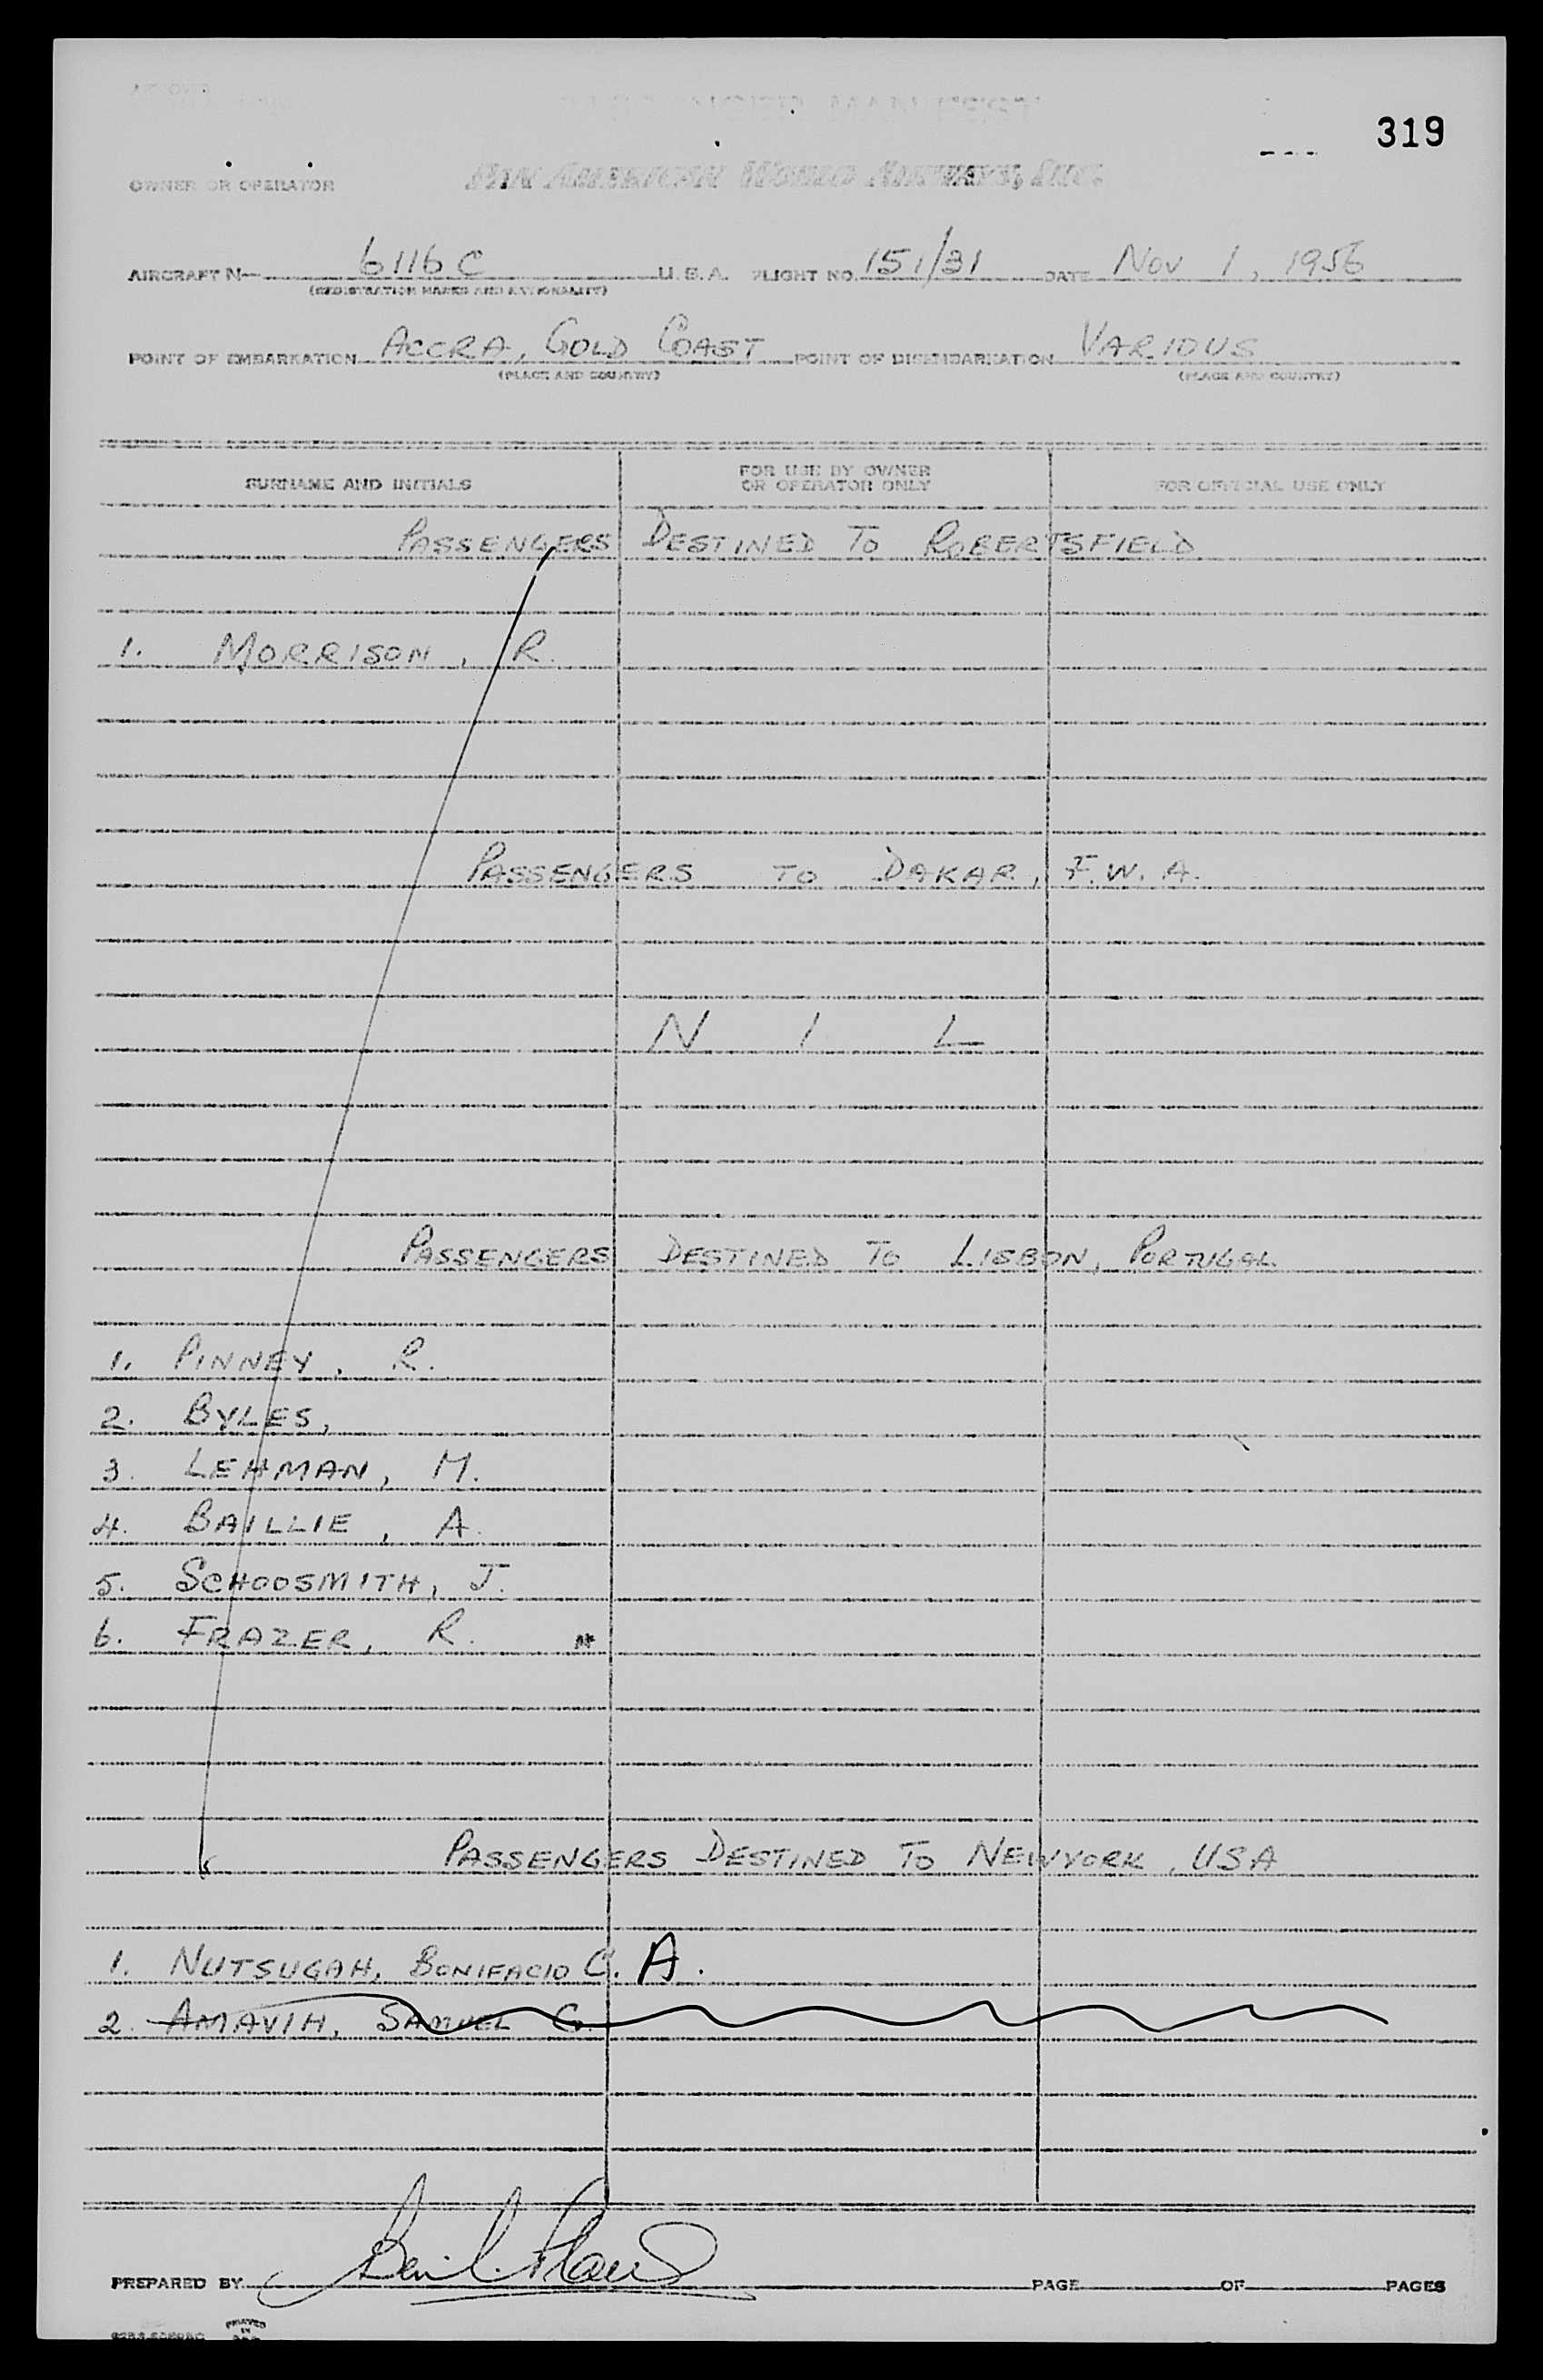 319
OWNER OR OPERATOR PAN AMERICAN WORLD AIRWAYS, INC.
AIRCRAFT N— 6116C U.S.A. FLIGHT NO. 151/31 DATE Nov 1, 1956
(REGISTRATION MARKS AND NATIONALITY)
POINT OF EMBARKATION ACCRA, GOLD COAST POINT OF DISEMBARKATION VARIOUS
(PLACE AND COUNTRY) (PLACE AND COUNTRY)
SURNAME AND INITIALS FOR USE BY OWNER OR OPERATOR ONLY FOR OFFICIAL USE ONLY
PASSENGERS DESTINED TO ROBERTSFIELD
1. MORRISON, R.
PASSENGERS TO DAKAR, F.W.A.
N I L
PASSENGERS DESTINED TO LISBON, PORTUGAL
1. PINNEY, R.
2. BYLES,
3. LEHMAN, M.
4. BAILLIE, A.
5. SCHOOSMITH, J.
6. FRAZER, R.
PASSENGERS DESTINED TO NEWYORK, USA
1. NUTSUGAH, BONIFACIO C. A.
2. AMAVIH, SAMUEL G.
PREPARED BY PAGE OF PAGES
PRINTED IN